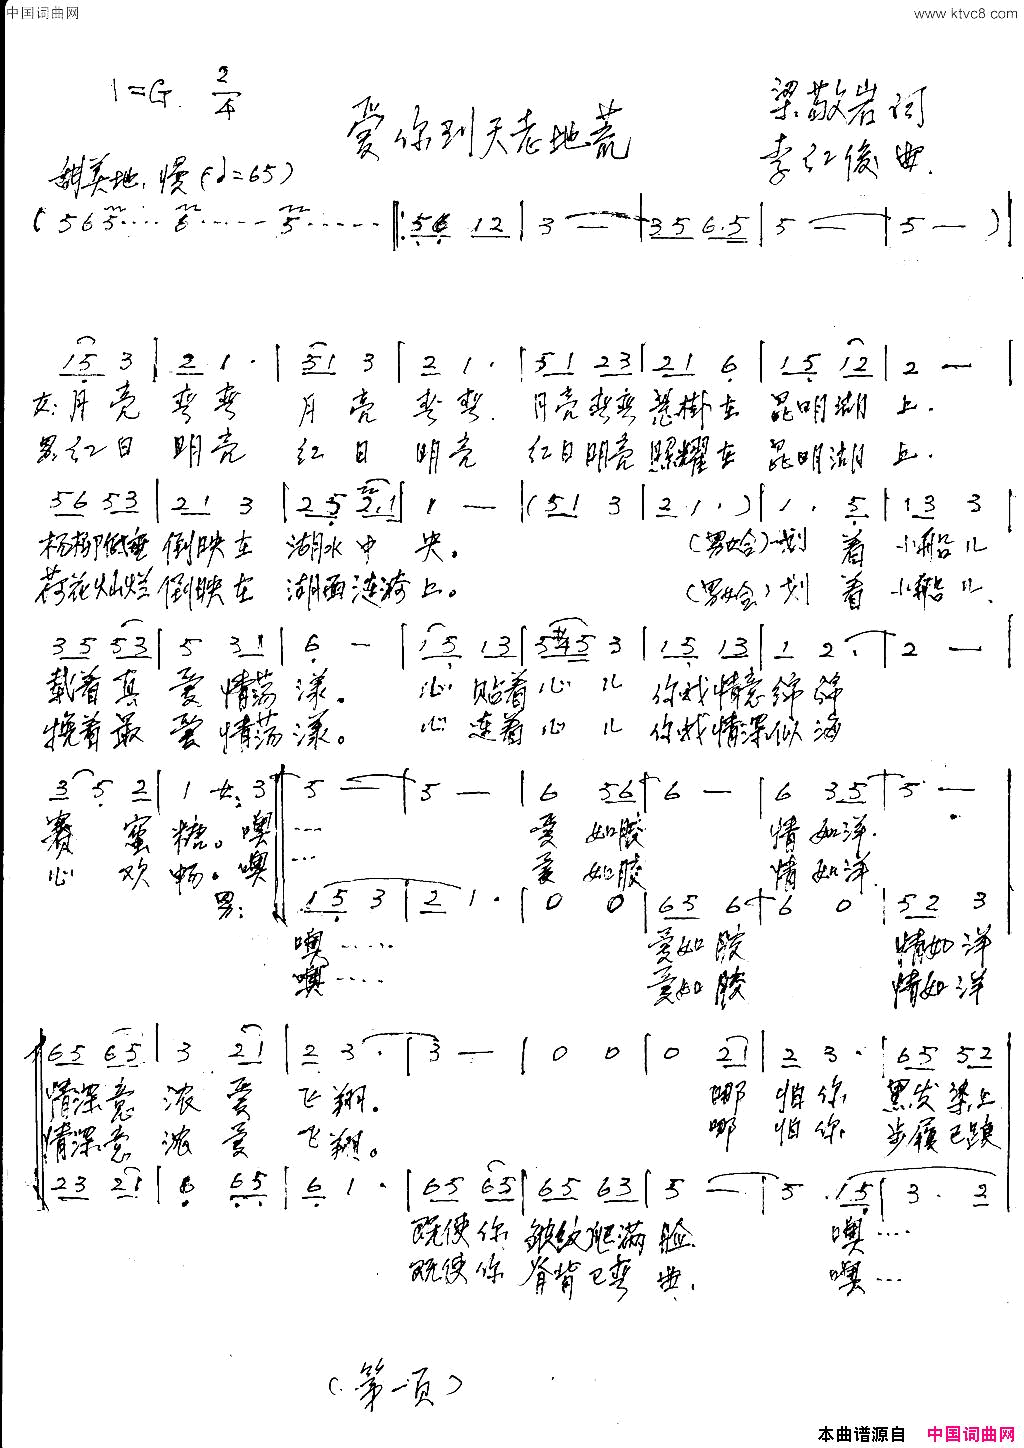 中国词曲网
www.ktvc8.com
1=G 2/4
爱你到天老地荒
梁敬岩词
李红俊曲.
甜美地,慢(♩=65)
(5 6 5···· 6······ 5······ ‖: 56 12 | 3 — | 35 6·5 | 5 — | 5 — ) |
15 3 | 2 1 · | 51 3 | 2 1 · | 51 23 | 21 6 | 15 12 | 2 — |
女:月亮弯弯 月亮弯弯. 月亮弯弯悬掛在昆明湖上.
男:红日明亮 红日明亮 红日明亮照耀在昆明湖上.
56 53 | 21 3 | 25 2·1 | 1 — | (51 3 | 2 1 · ) | 1 · 5 | 13 3
杨柳低垂倒映在湖水中央。(男女合)划着小船儿
荷花灿烂倒映在湖面涟漪上。(男女合)划着小船儿.
35 53 | 5 31 | 6 — | 15 13 | 5#45 3 | 15 13 | 1 2 · | 2 —
载着真爱情荡漾。心贴着心儿你我情意绵绵
挽着最爱情荡漾。心连着心儿你我情深似海
3 5 2 | 1 女: 3 ‖ 5 — | 5 — | 6 56 | 6 — | 6 35 | 5 —
赛蜜糖。噢···爱如胶情如洋.
心欢畅。噢···爱如胶情如洋.
男: 15 3 | 2 1 · | 0 0 | 65 6 | 6 0 | 52 3
噢····爱如胶情如洋
噢····爱如胶情如洋
65 65 | 3 21 | 2 3 · | 3 — | 0 0 | 0 21 | 2 3 · | 65 52
情深意浓爱飞翔.哪怕你黑发染上
情深意浓爱飞翔。哪怕你步履已踉
23 21 | 6 65 | 6 1 · | 65 65 | 65 63 | 5 — | 5 · 15 | 3 · 2
既使你皱纹爬满脸.噢····
既使你脊背已弯曲.噢···
(第一页)
本曲谱源自 中国词曲网